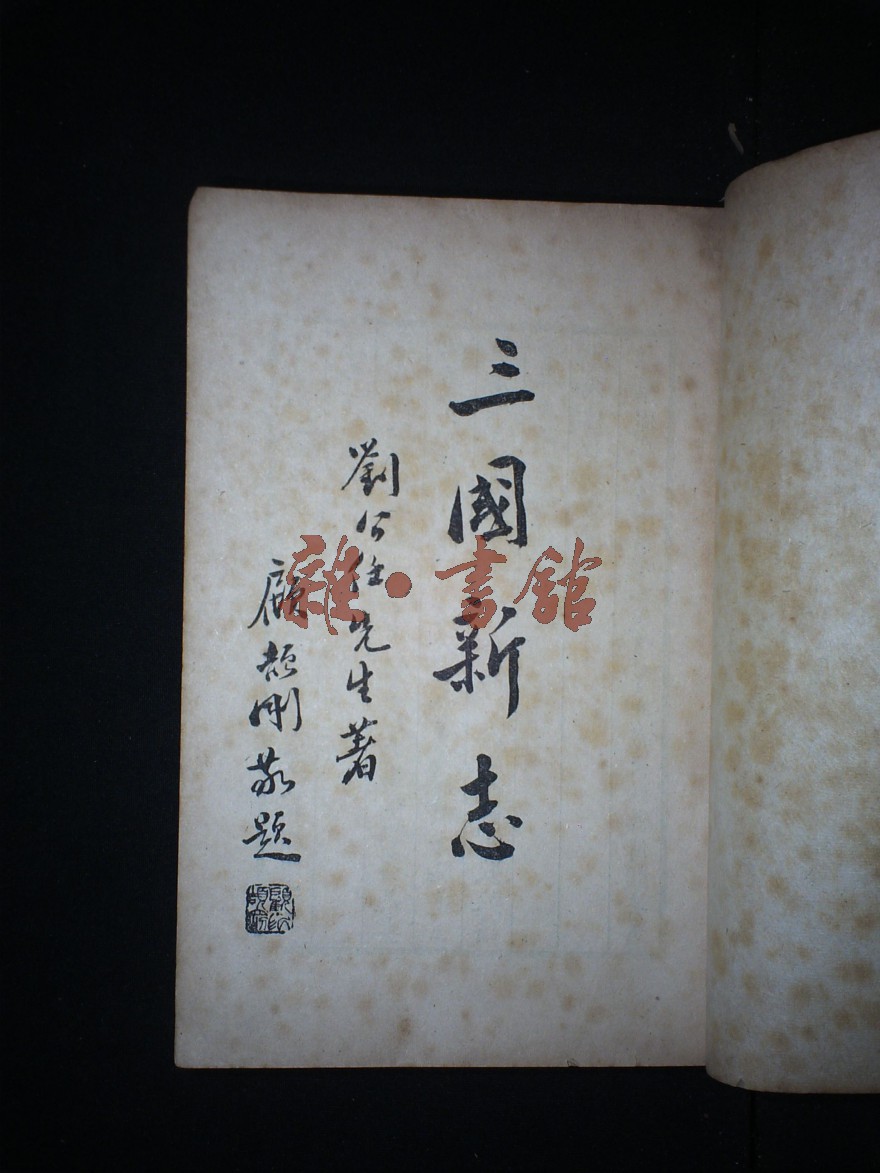 三國新志
劉公任先生著
顧頡剛敬題
雜·書館